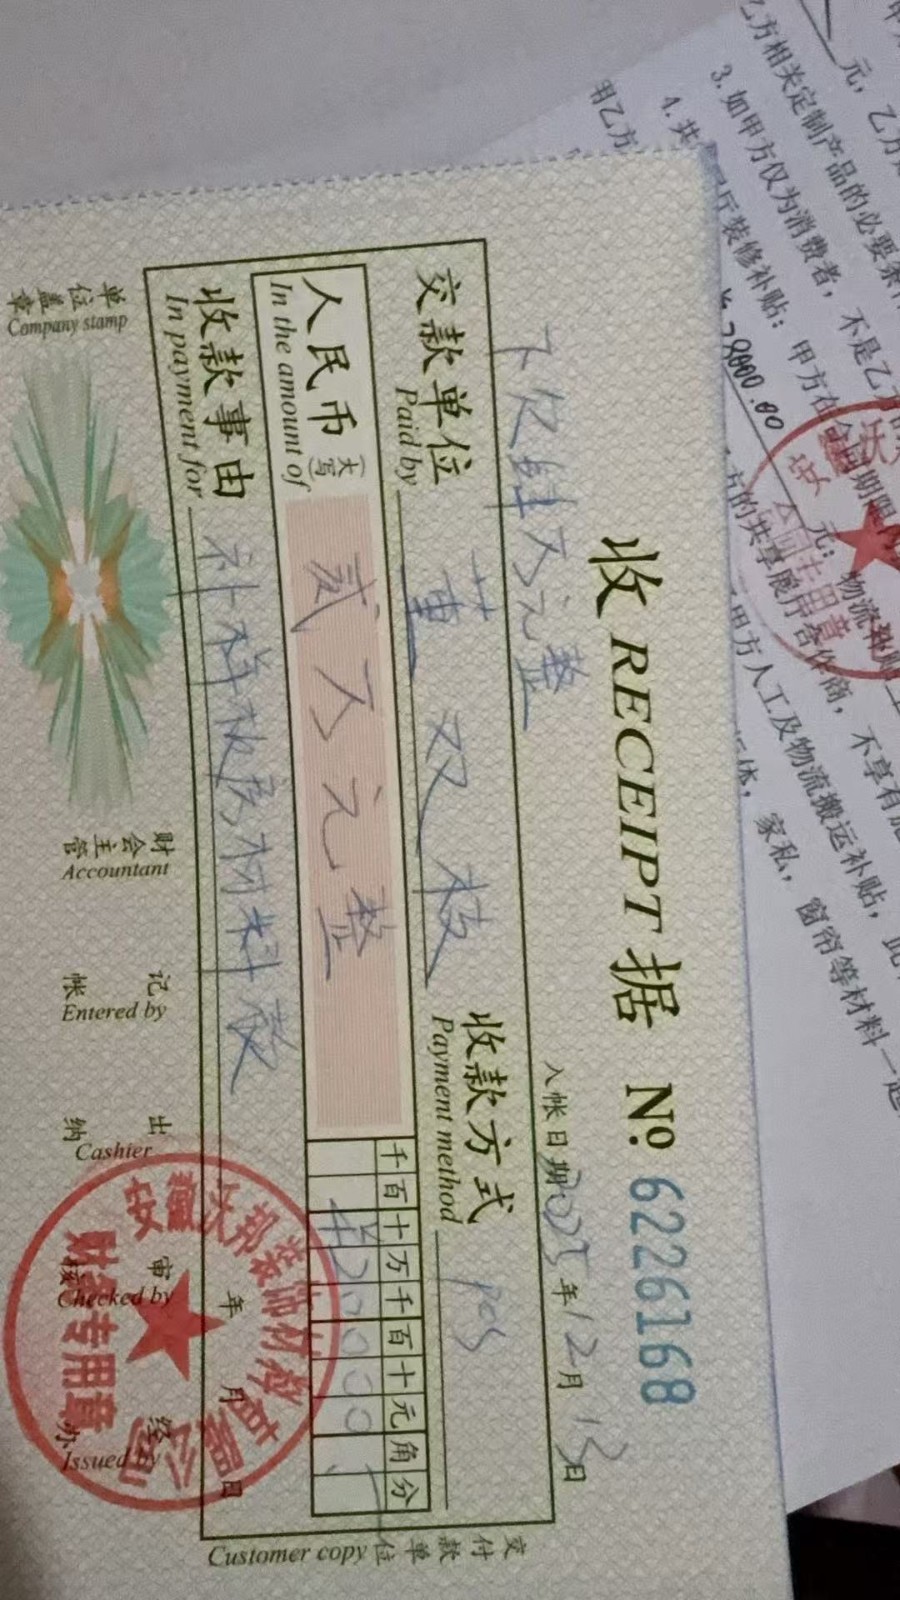 收 RECEIPT 据 № 6226168
入帐日期 2023年12月13日
下欠肆万元整
交款单位 董双枝 收款方式 pos
Paid by Payment method
人民币(大写) 贰万元整
In the amount of
千百十万千百十元角分
¥20000
收款事由 补样板房材料款
In payment for
年 月 日
单位盖章 财会主管 记帐 出纳 审核 经办
Company stamp Accountant Entered by Cashier Checked by Issued by
财务专用章
交付款单位
Customer copy
元,乙方
乙方相关定制产品的必要条件
3. 如甲方仅为消费者,不是乙方
4. 共
展厅装修补贴:甲方在合同期限内
¥78000.00
元;物流补贴
方的共享展厅合作商,不享有
甲方人工及物流搬运补贴,此
家私,窗帘等材料一起
用乙方